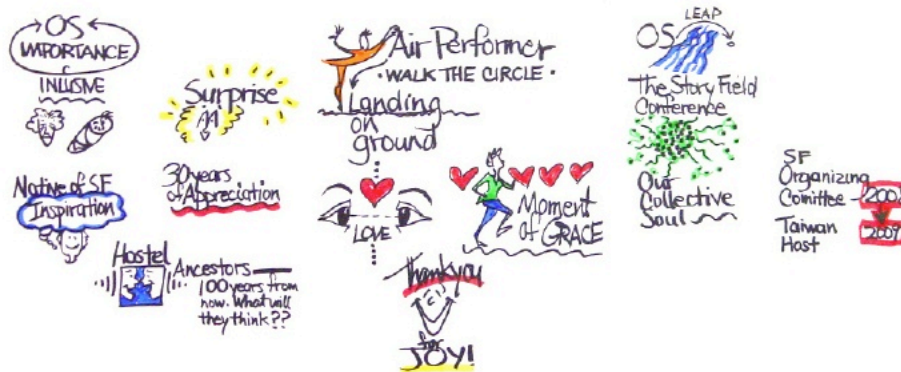 OS
IMPORTANCE
INLUSIVE
Native of SF
Inspiration
Surprise
30 years
of Appreciation
Hostel
Ancestors
100 years from
now. What will
they think??
Air Performer
• WALK THE CIRCLE •
Landing
on
ground
LOVE
Moment
of GRACE
Thank you
for
JOY!
LEAP
OS
The Story Field
Conference
Our
Collective
Soul
SF
Organizing
Comittee
Taiwan
Host